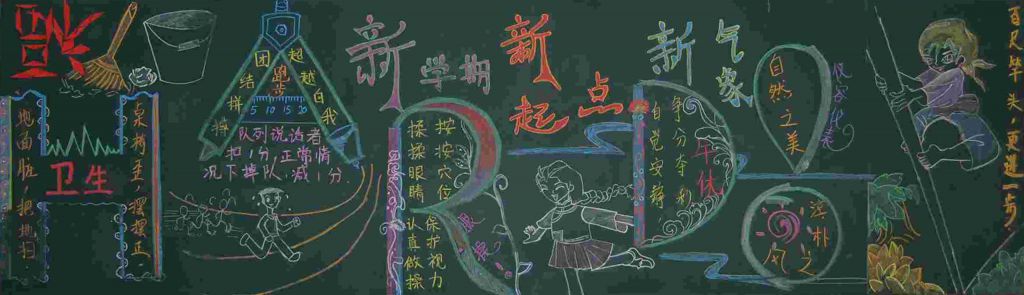 福
地面脏，把地扫
卫生
桌椅歪，摆摆正
团结拼搏
超越自我
5 10 15 20
队列说话者
扣1分，正常情
况下掉队，减1分
新学期
新起点
新气象
按按穴位
揉揉眼睛
保护视力
认真做操
争分夺秒
自觉安静
午休
自然之美
淳朴之风
百尺竿头，更進一步